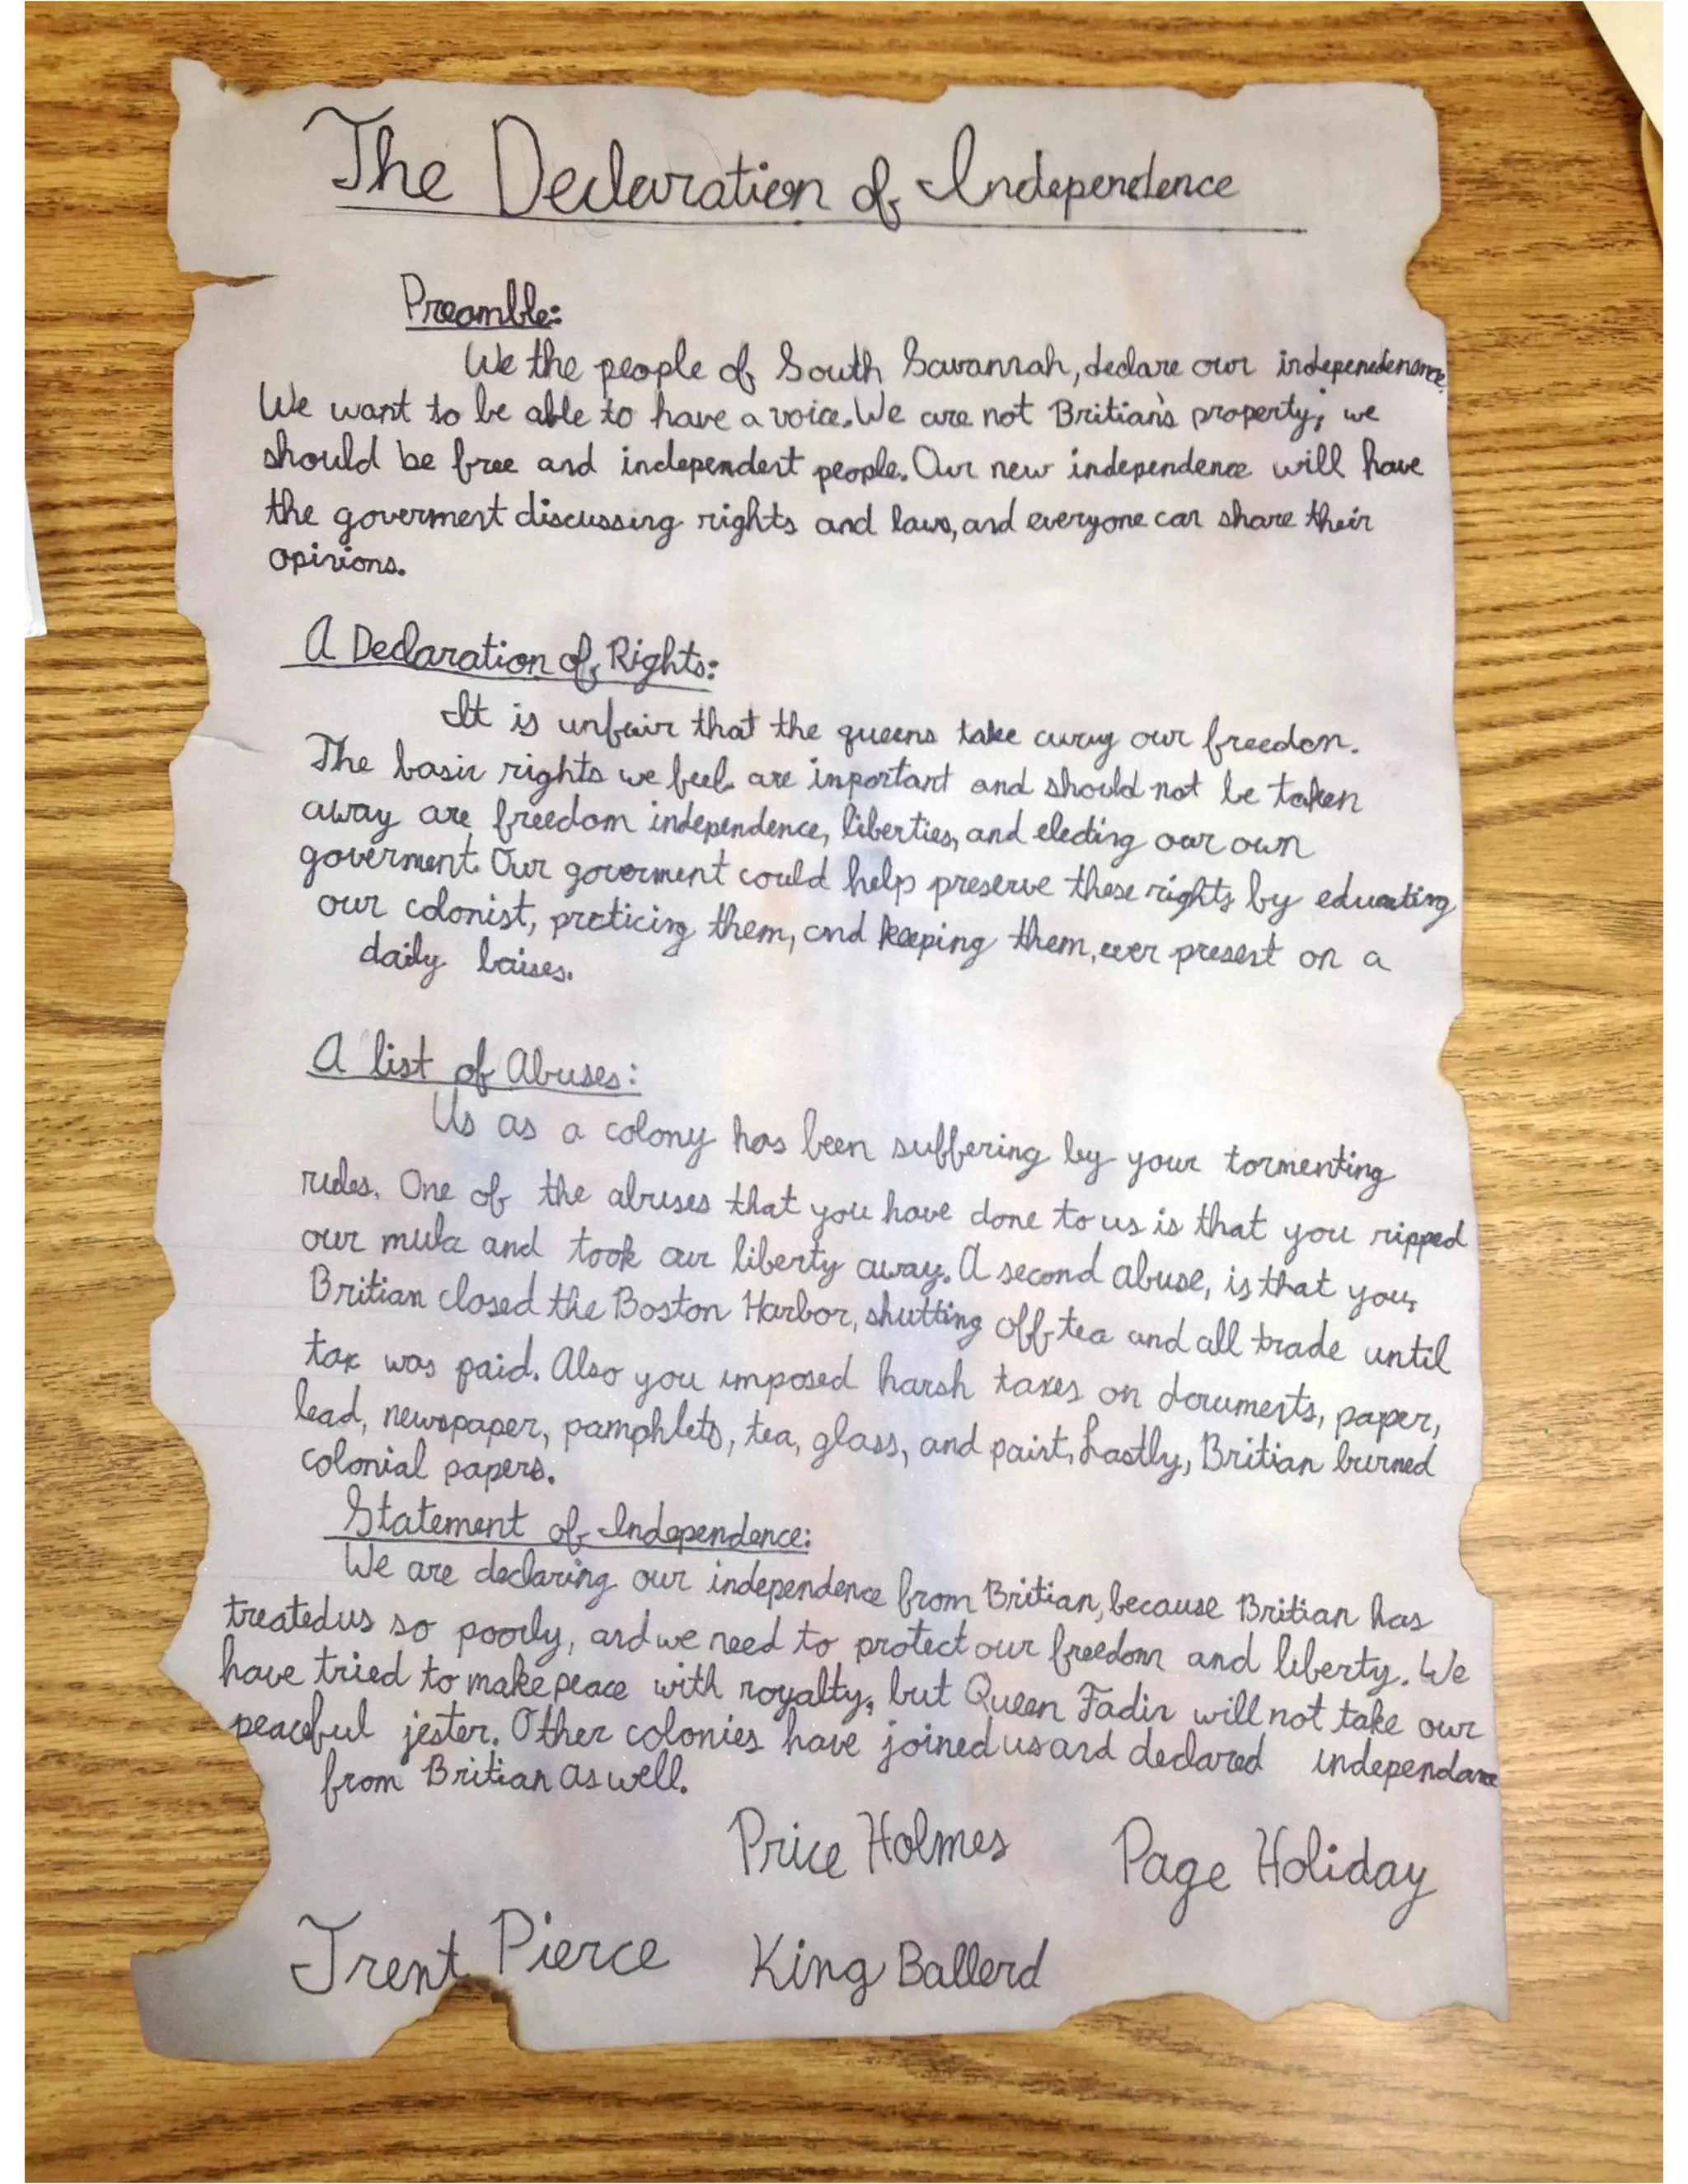 The Declaration of Independence
Preamble:
We the people of South Savannah, declare our indepenedenence.
We want to be able to have a voice. We are not Britian's property; we
should be free and independent people. Our new independence will have
the goverment discussing rights and laws, and everyone can share their
opinions.
A Declaration of Rights:
It is unfair that the queens take away our freedom.
The basic rights we feel are important and should not be taken
away are freedom independence, liberties, and electing our own
goverment. Our goverment could help preserve these rights by educating
our colonist, practicing them, and keeping them, ever present on a
daily baises.
A list of Abuses:
Us as a colony has been suffering by your tormenting
rules. One of the abruses that you have done to us is that you ripped
our mula and took our liberty away. A second abuse, is that you,
Britian closed the Boston Harbor, shutting off tea and all trade until
tax was paid. Also you imposed harsh taxes on documents, paper,
lead, newspaper, pamphlets, tea, glass, and paint. Lastly, Britian burned
colonial papers.
Statement of Independence:
We are declaring our independence from Britian, because Britian has
treated us so poorly, and we need to protect our freedom and liberty. We
have tried to make peace with royalty, but Queen Fadir will not take our
peaceful jester. Other colonies have joined us and declared independance
from Britian as well.
Price Holmes Page Holiday
Trent Pierce King Ballerd